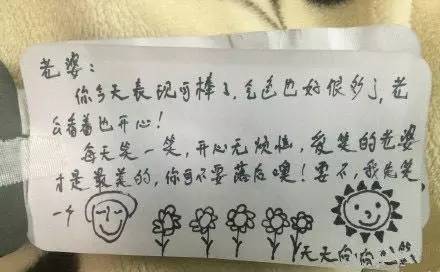 老婆：
你今天表现可棒了，气色也好很多了，老
公看着也开心！
每天笑一笑，开心无烦恼，爱笑的老婆
才是最美的，你可不要落后噢！要不，我先笑
一个
天天向你